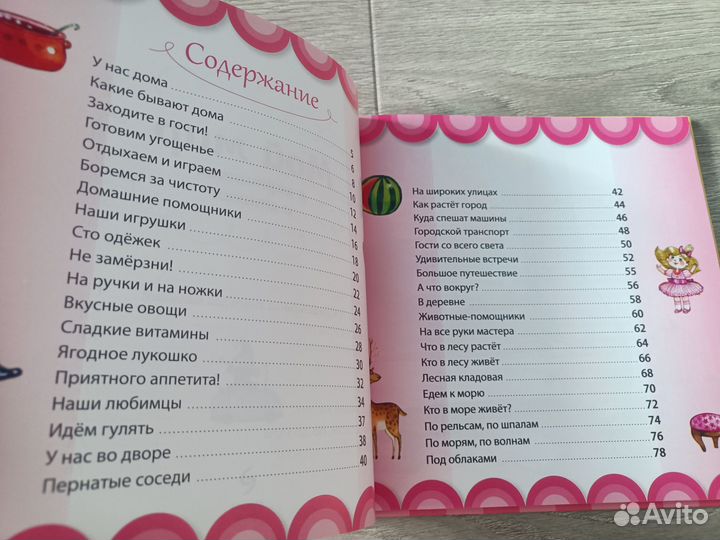 Содержание
У нас дома 5
Какие бывают дома 6
Заходите в гости! 8
Готовим угощенье 10
Отдыхаем и играем 12
Боремся за чистоту 14
Домашние помощники 16
Наши игрушки 18
Сто одёжек 20
Не замёрзни! 22
На ручки и на ножки 24
Вкусные овощи 26
Сладкие витамины 28
Ягодное лукошко 30
Приятного аппетита! 32
Наши любимцы 34
Идём гулять 37
У нас во дворе 38
Пернатые соседи 40
На широких улицах 42
Как растёт город 44
Куда спешат машины 46
Городской транспорт 48
Гости со всего света 50
Удивительные встречи 52
Большое путешествие 55
А что вокруг? 56
В деревне 58
Животные-помощники 60
На все руки мастера 62
Что в лесу растёт 64
Кто в лесу живёт 66
Лесная кладовая 68
Едем к морю 70
Кто в море живёт? 72
По рельсам, по шпалам 74
По морям, по волнам 76
Под облаками 78
Avito